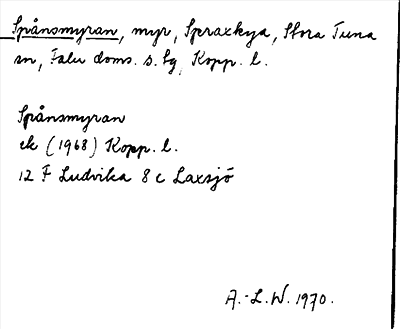 Spånsmyran, myr, Spraxkya, Stora Tuna
sn, Falu doms. s. lg, Kopp. l.
Spånsmyran
ek (1968) Kopp. l.
12 F Ludvika 8 c Laxsjö
A.-L.W. 1970.